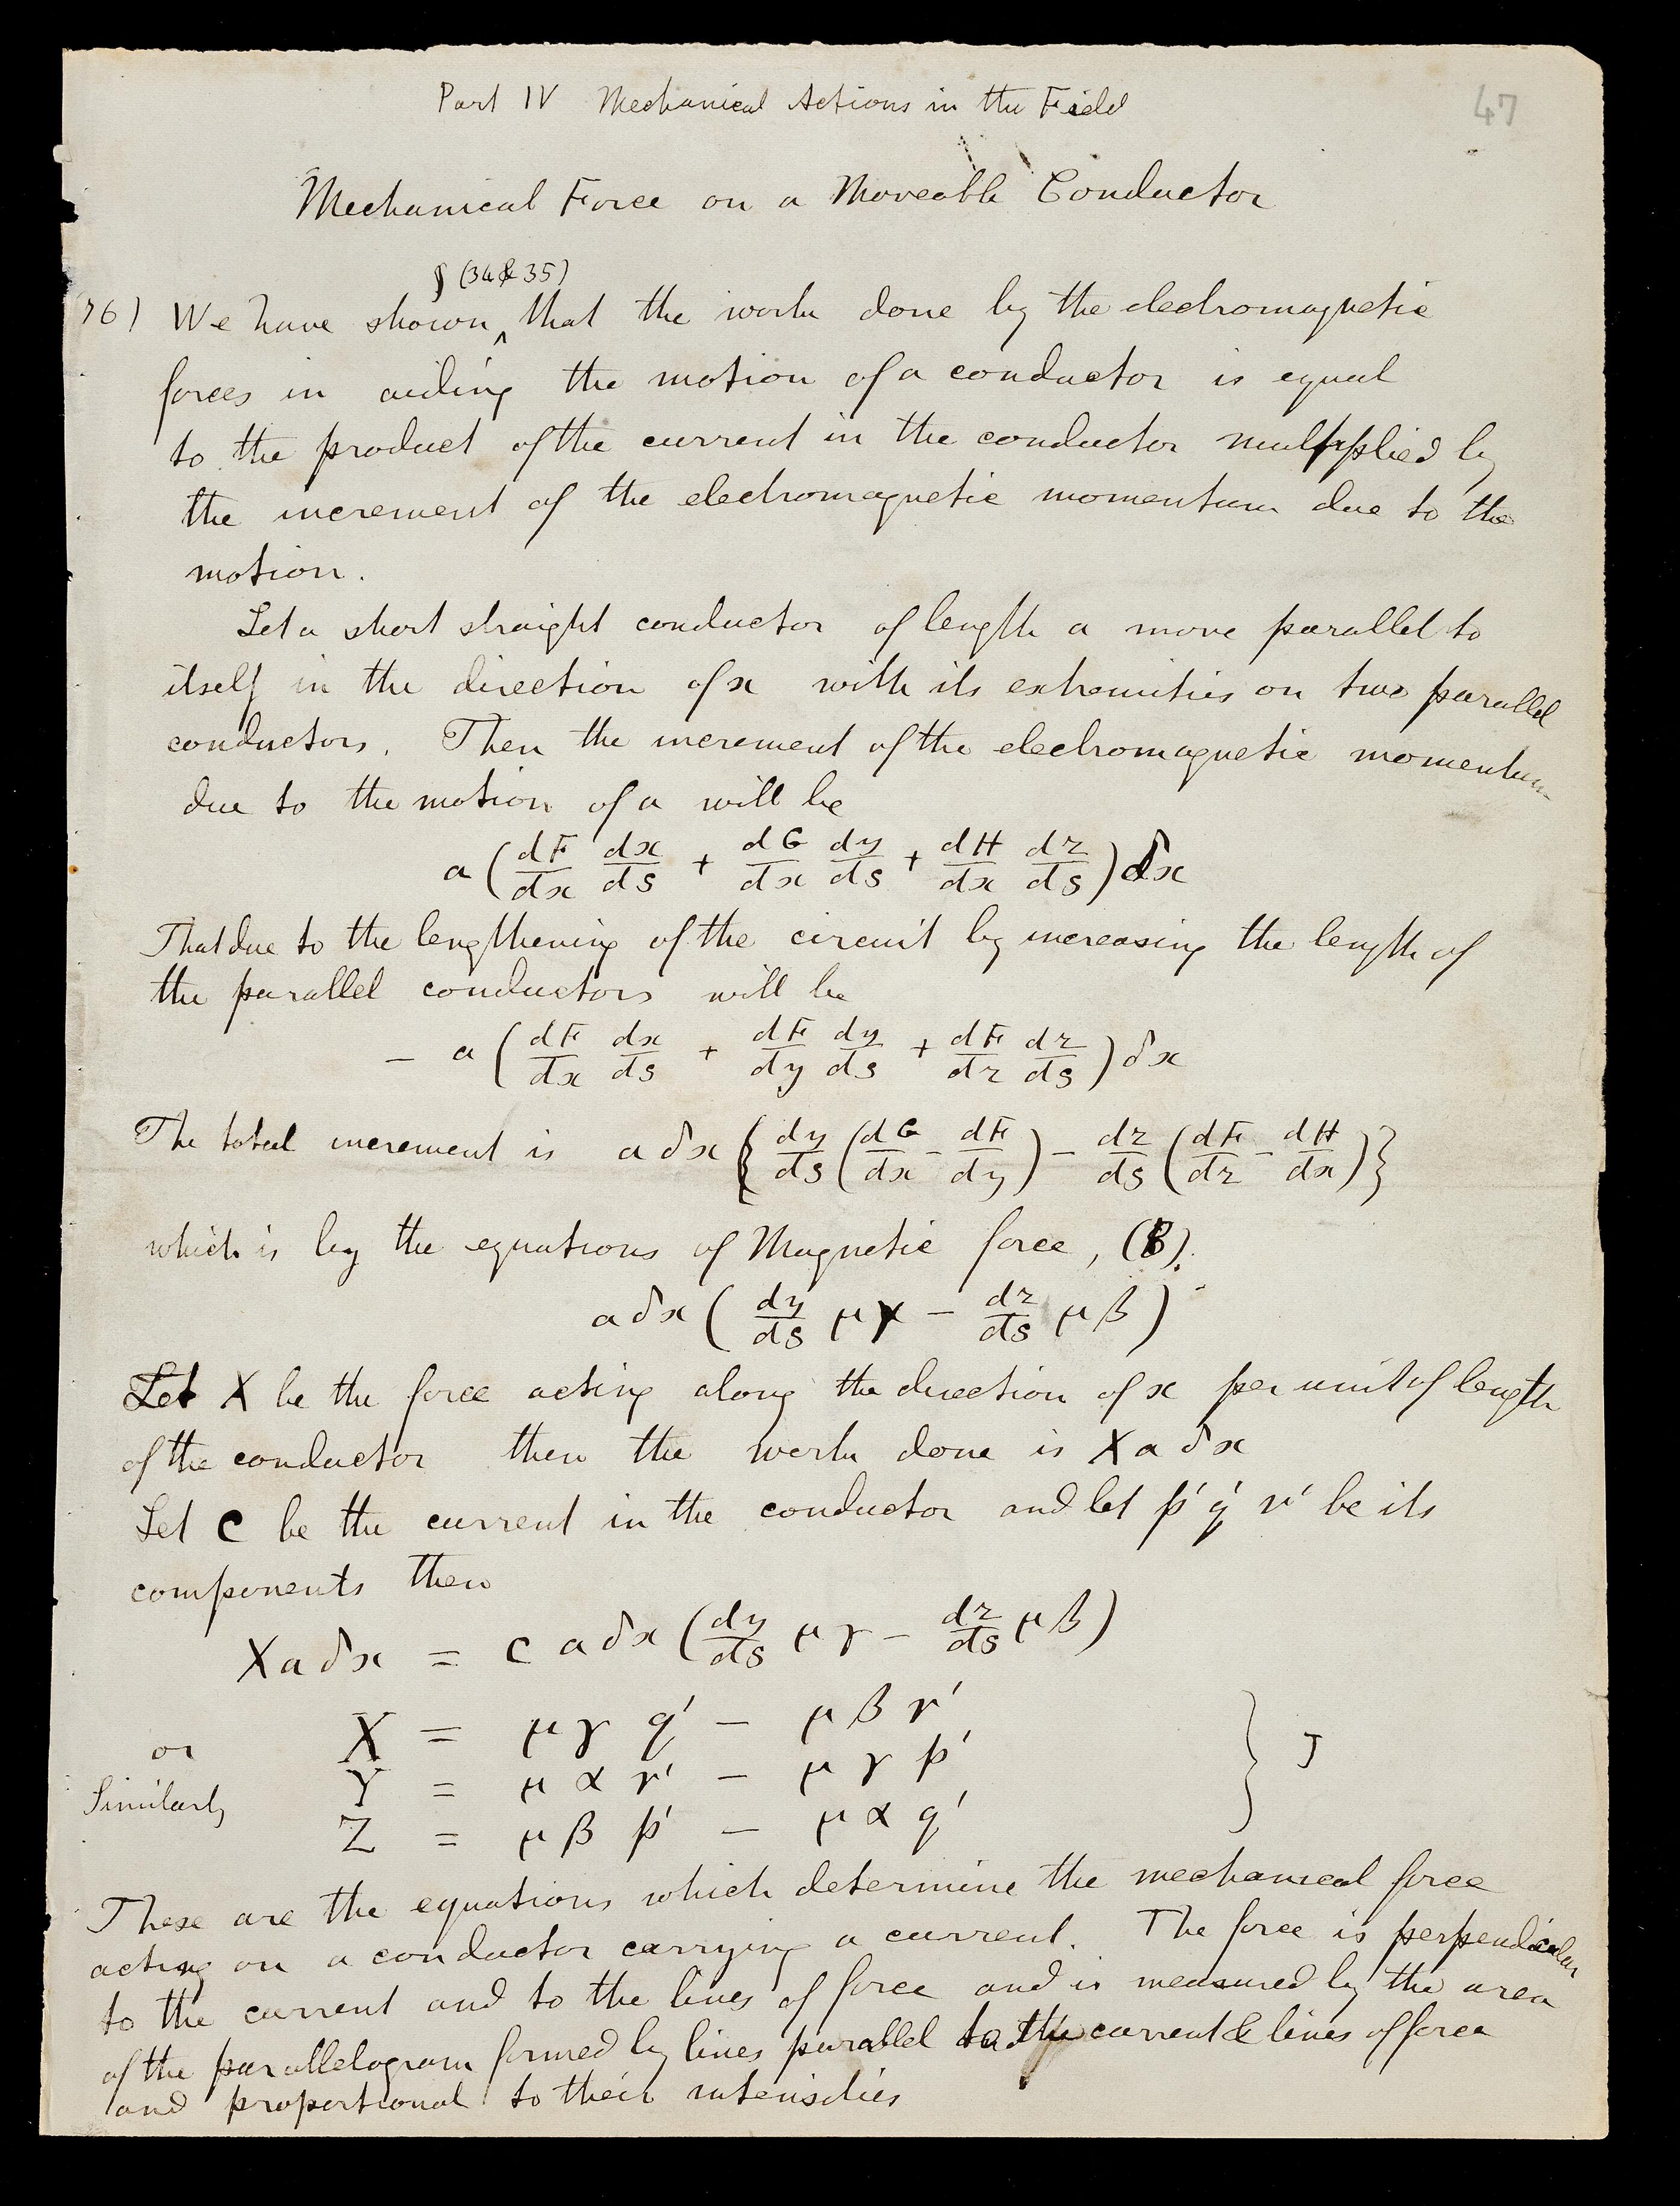 Part IV Mechanical Actions in the Field
47
Mechanical Force on a Moveable Conductor
§ (34 & 35)
76) We have shown ‸ that the work done by the electromagnetic
forces in aiding the motion of a conductor is equal
to the product of the current in the conductor multiplied by
the increment of the electromagnetic momentum due to the
motion.
Let a short straight conductor of length a move parallel to
itself in the direction of x with its extremities on two parallel
conductors. Then the increment of the electromagnetic momentum
due to the motion of a will be
a (dF/dx dx/ds + dG/dx dy/ds + dH/dx dz/ds) δx
That due to the lengthening of the circuit by increasing the length of
the parallel conductors will be
− a (dF/dx dx/ds + dF/dy dy/ds + dF/dz dz/ds) δx
The total increment is a δx {dy/ds (dG/dx − dF/dy) − dz/ds (dF/dz − dH/dx)}
which is by the equations of Magnetic force, (B).
a δx (dy/ds μγ − dz/ds μβ)
Let X be the force acting along the direction of x per unit of length
of the conductor then the work done is X a δx
Let C be the current in the conductor and let p' q' r' be its
components then
X a δx = C a δx (dy/ds μγ − dz/ds μβ)
or X = μγ q' − μβ r'
Similarly Y = μα r' − μγ p' } J
Z = μβ p' − μα q'
These are the equations which determine the mechanical force
acting on a conductor carrying a current. The force is perpendicular
to the current and to the lines of force and is measured by the area
of the parallelogram formed by lines parallel to the current & lines of force
and proportional to their intensities